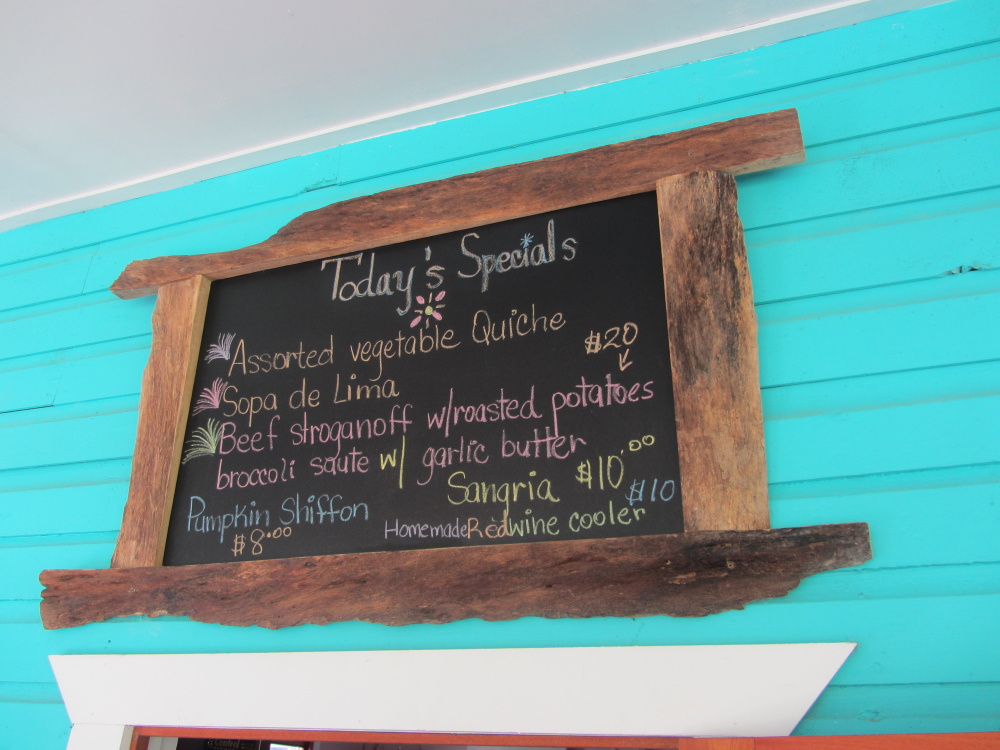 Today's Specials
Assorted vegetable Quiche
$20
Sopa de Lima
Beef stroganoff w/roasted potatoes
broccoli saute w/ garlic butter
Sangria $10.00
Pumpkin Shiffon
$8.00
$10
Homemade Red wine cooler